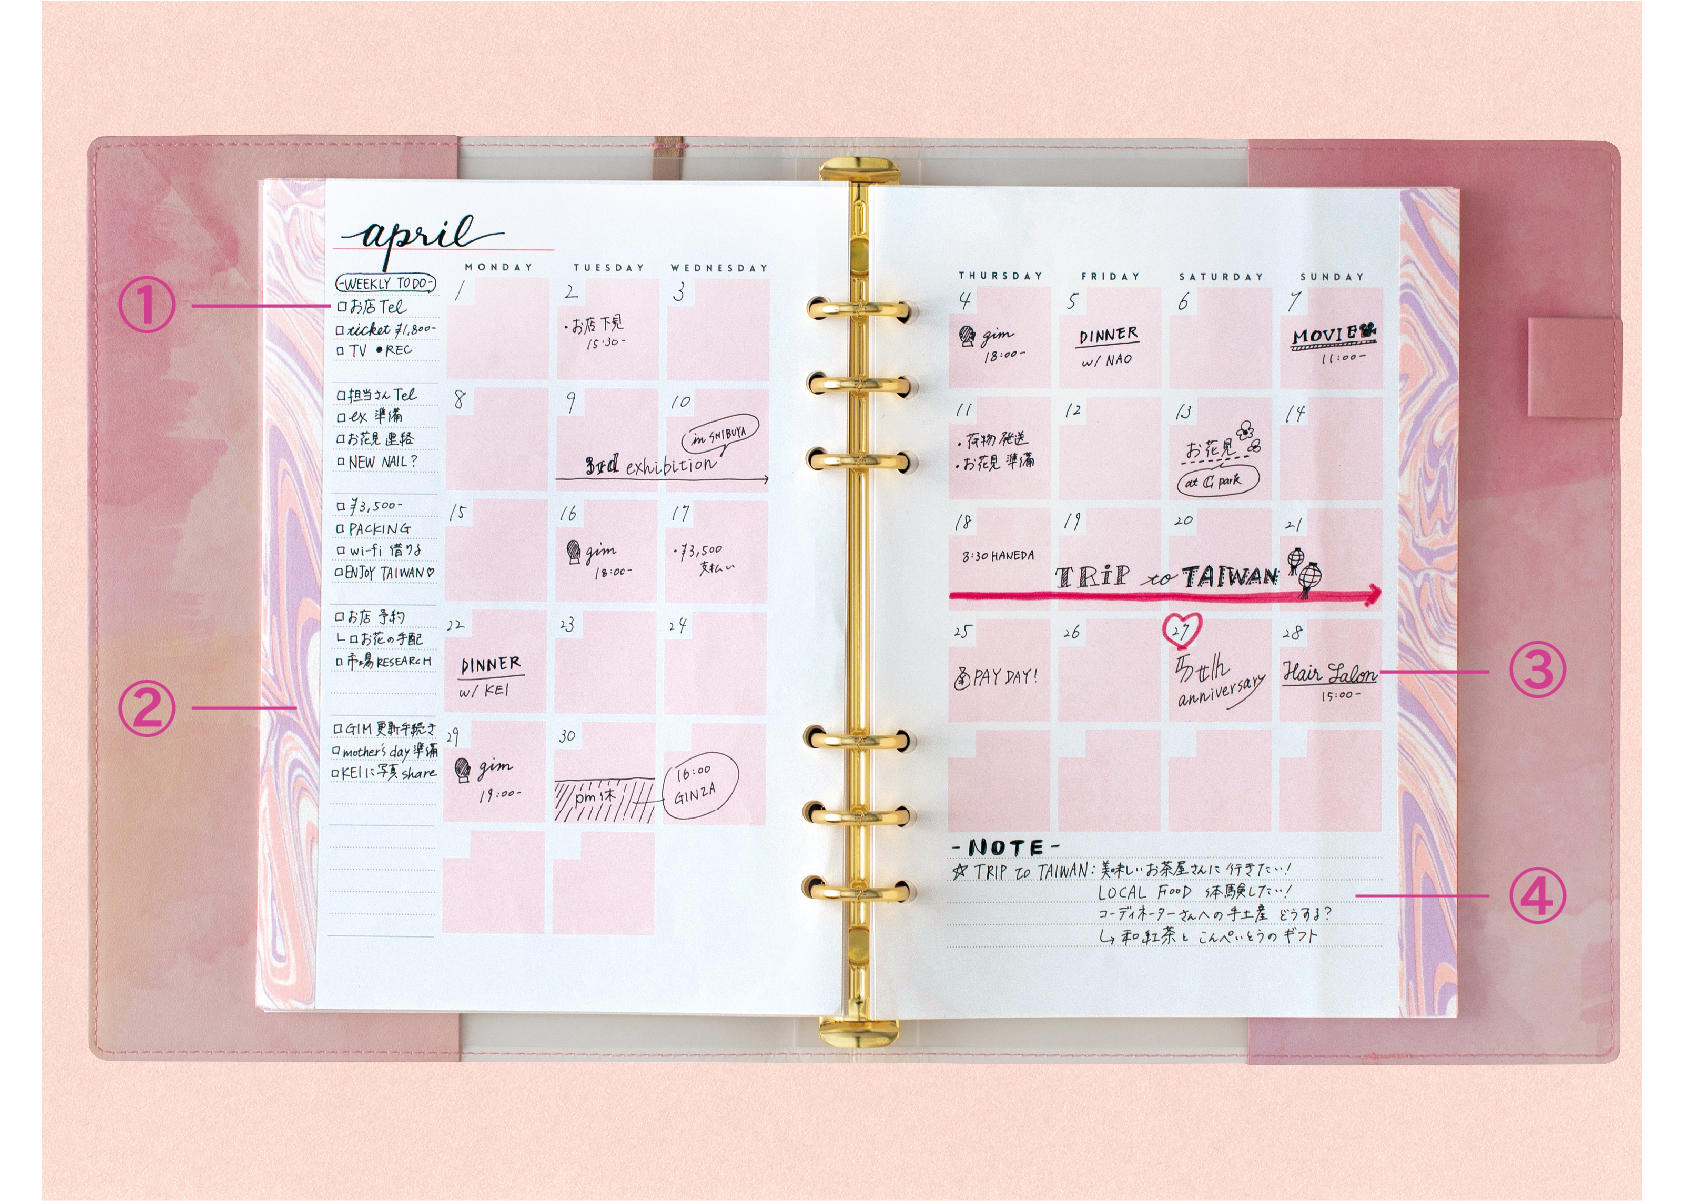 april
MONDAY TUESDAY WEDNESDAY
THURSDAY FRIDAY SATURDAY SUNDAY
①
-WEEKLY TODO-
□お店 Tel
□ticket ¥1,800-
□TV ●REC
1
2
・お店下見
15:30-
3
4
gim
18:00-
5
DINNER
w/ NAO
6
7
MOVIE
11:00-
□担当さん Tel
□ex 準備
□お花見連絡
□NEW NAIL?
8
9
10
in SHIBUYA
3rd exhibition
11
・荷物発送
・お花見準備
12
13
お花見
at C park
14
□¥3,500-
□PACKING
□wi-fi 借りる
□ENJOY TAIWAN♡
15
16
gim
18:00-
17
・¥3,500
支払い
18
8:30 HANEDA
19
20
21
TRiP to TAIWAN
□お店 予約
└□お花の手配
□市場RESEARCH
②
22
DINNER
w/ KEI
23
24
25
PAY DAY!
26
27
anniversary
28
Hair Salon
15:00-
③
□GIM 更新手続き
□mother's day 準備
□KEIに写真 share
29
gim
19:00-
30
pm休
16:00
GINZA
-NOTE-
☆ TRIP to TAIWAN:美味しいお茶屋さんに行きたい!
LOCAL FOOD 体験したい!
コーディネーターさんへの手土産 どうする?
↳和紅茶と こんぺいとうのギフト
④